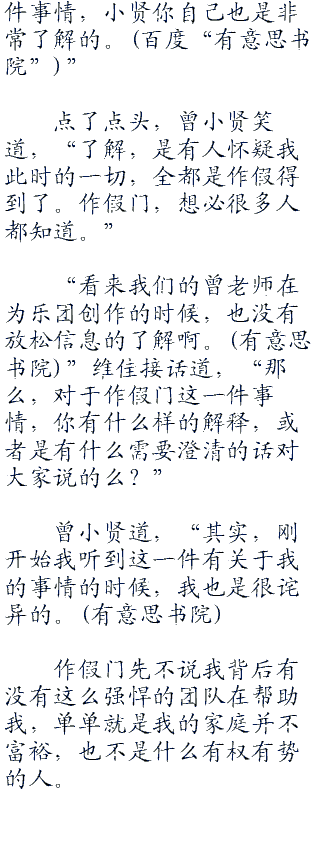 件事情，小贤你自己也是非
常了解的。(百度“有意思书
院”)”
点了点头，曾小贤笑
道，“了解，是有人怀疑我
此时的一切，全都是作假得
到了。作假门，想必很多人
都知道。”
“看来我们的曾老师在
为乐团创作的时候，也没有
放松信息的了解啊。(有意思
书院)”维住接话道，“那
么，对于作假门这一件事
情，你有什么样的解释，或
者是有什么需要澄清的话对
大家说的么？”
曾小贤道，“其实，刚
开始我听到这一件有关于我
的事情的时候，我也是很诧
异的。(有意思书院)
作假门先不说我背后有
没有这么强悍的团队在帮助
我，单单就是我的家庭并不
富裕，也不是什么有权有势
的人。